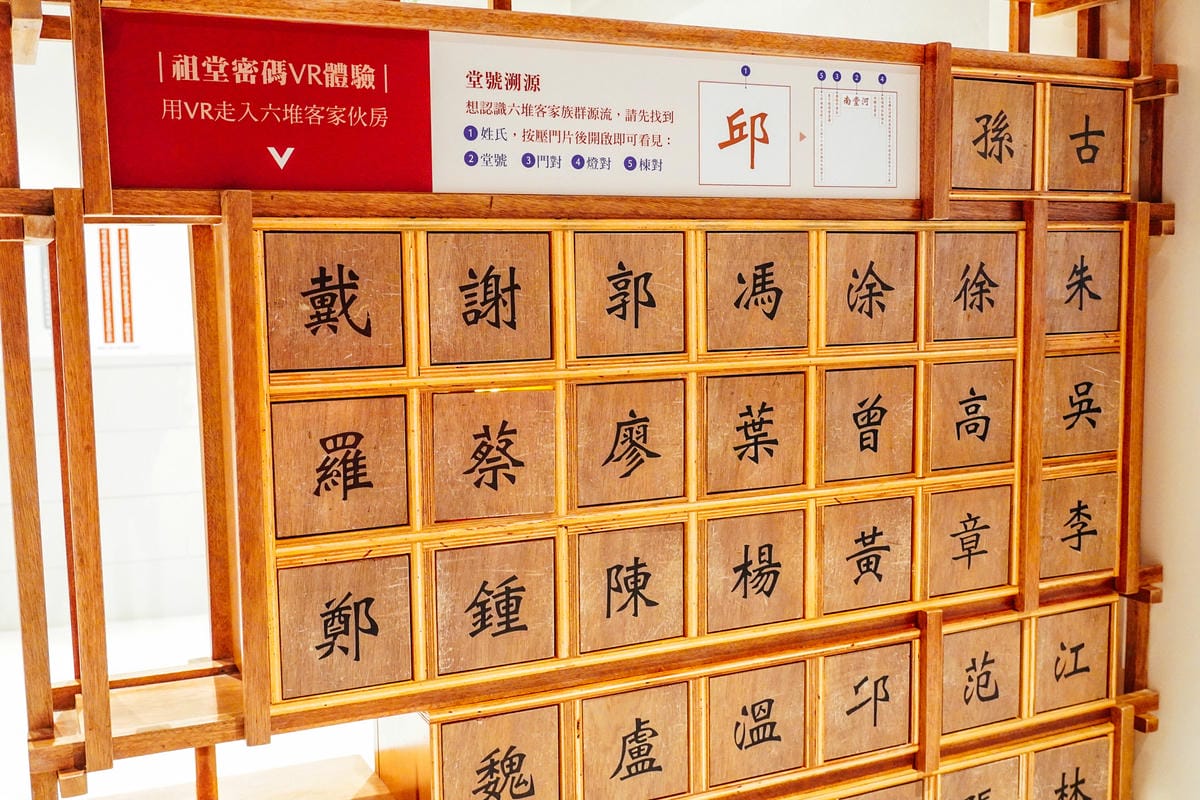 祖堂密碼VR體驗
用VR走入六堆客家伙房
堂號溯源
想認識六堆客家族群源流，請先找到
1姓氏，按壓門片後開啟即可看見：
2堂號 3門對 4燈對 5棟對
1
邱
5 3 2 4
南堂河
孫 古
戴 謝 郭 馮 涂 徐 朱
羅 蔡 廖 葉 曾 高 吳
鄭 鍾 陳 楊 黃 章 李
魏 盧 溫 邱 范 江
林